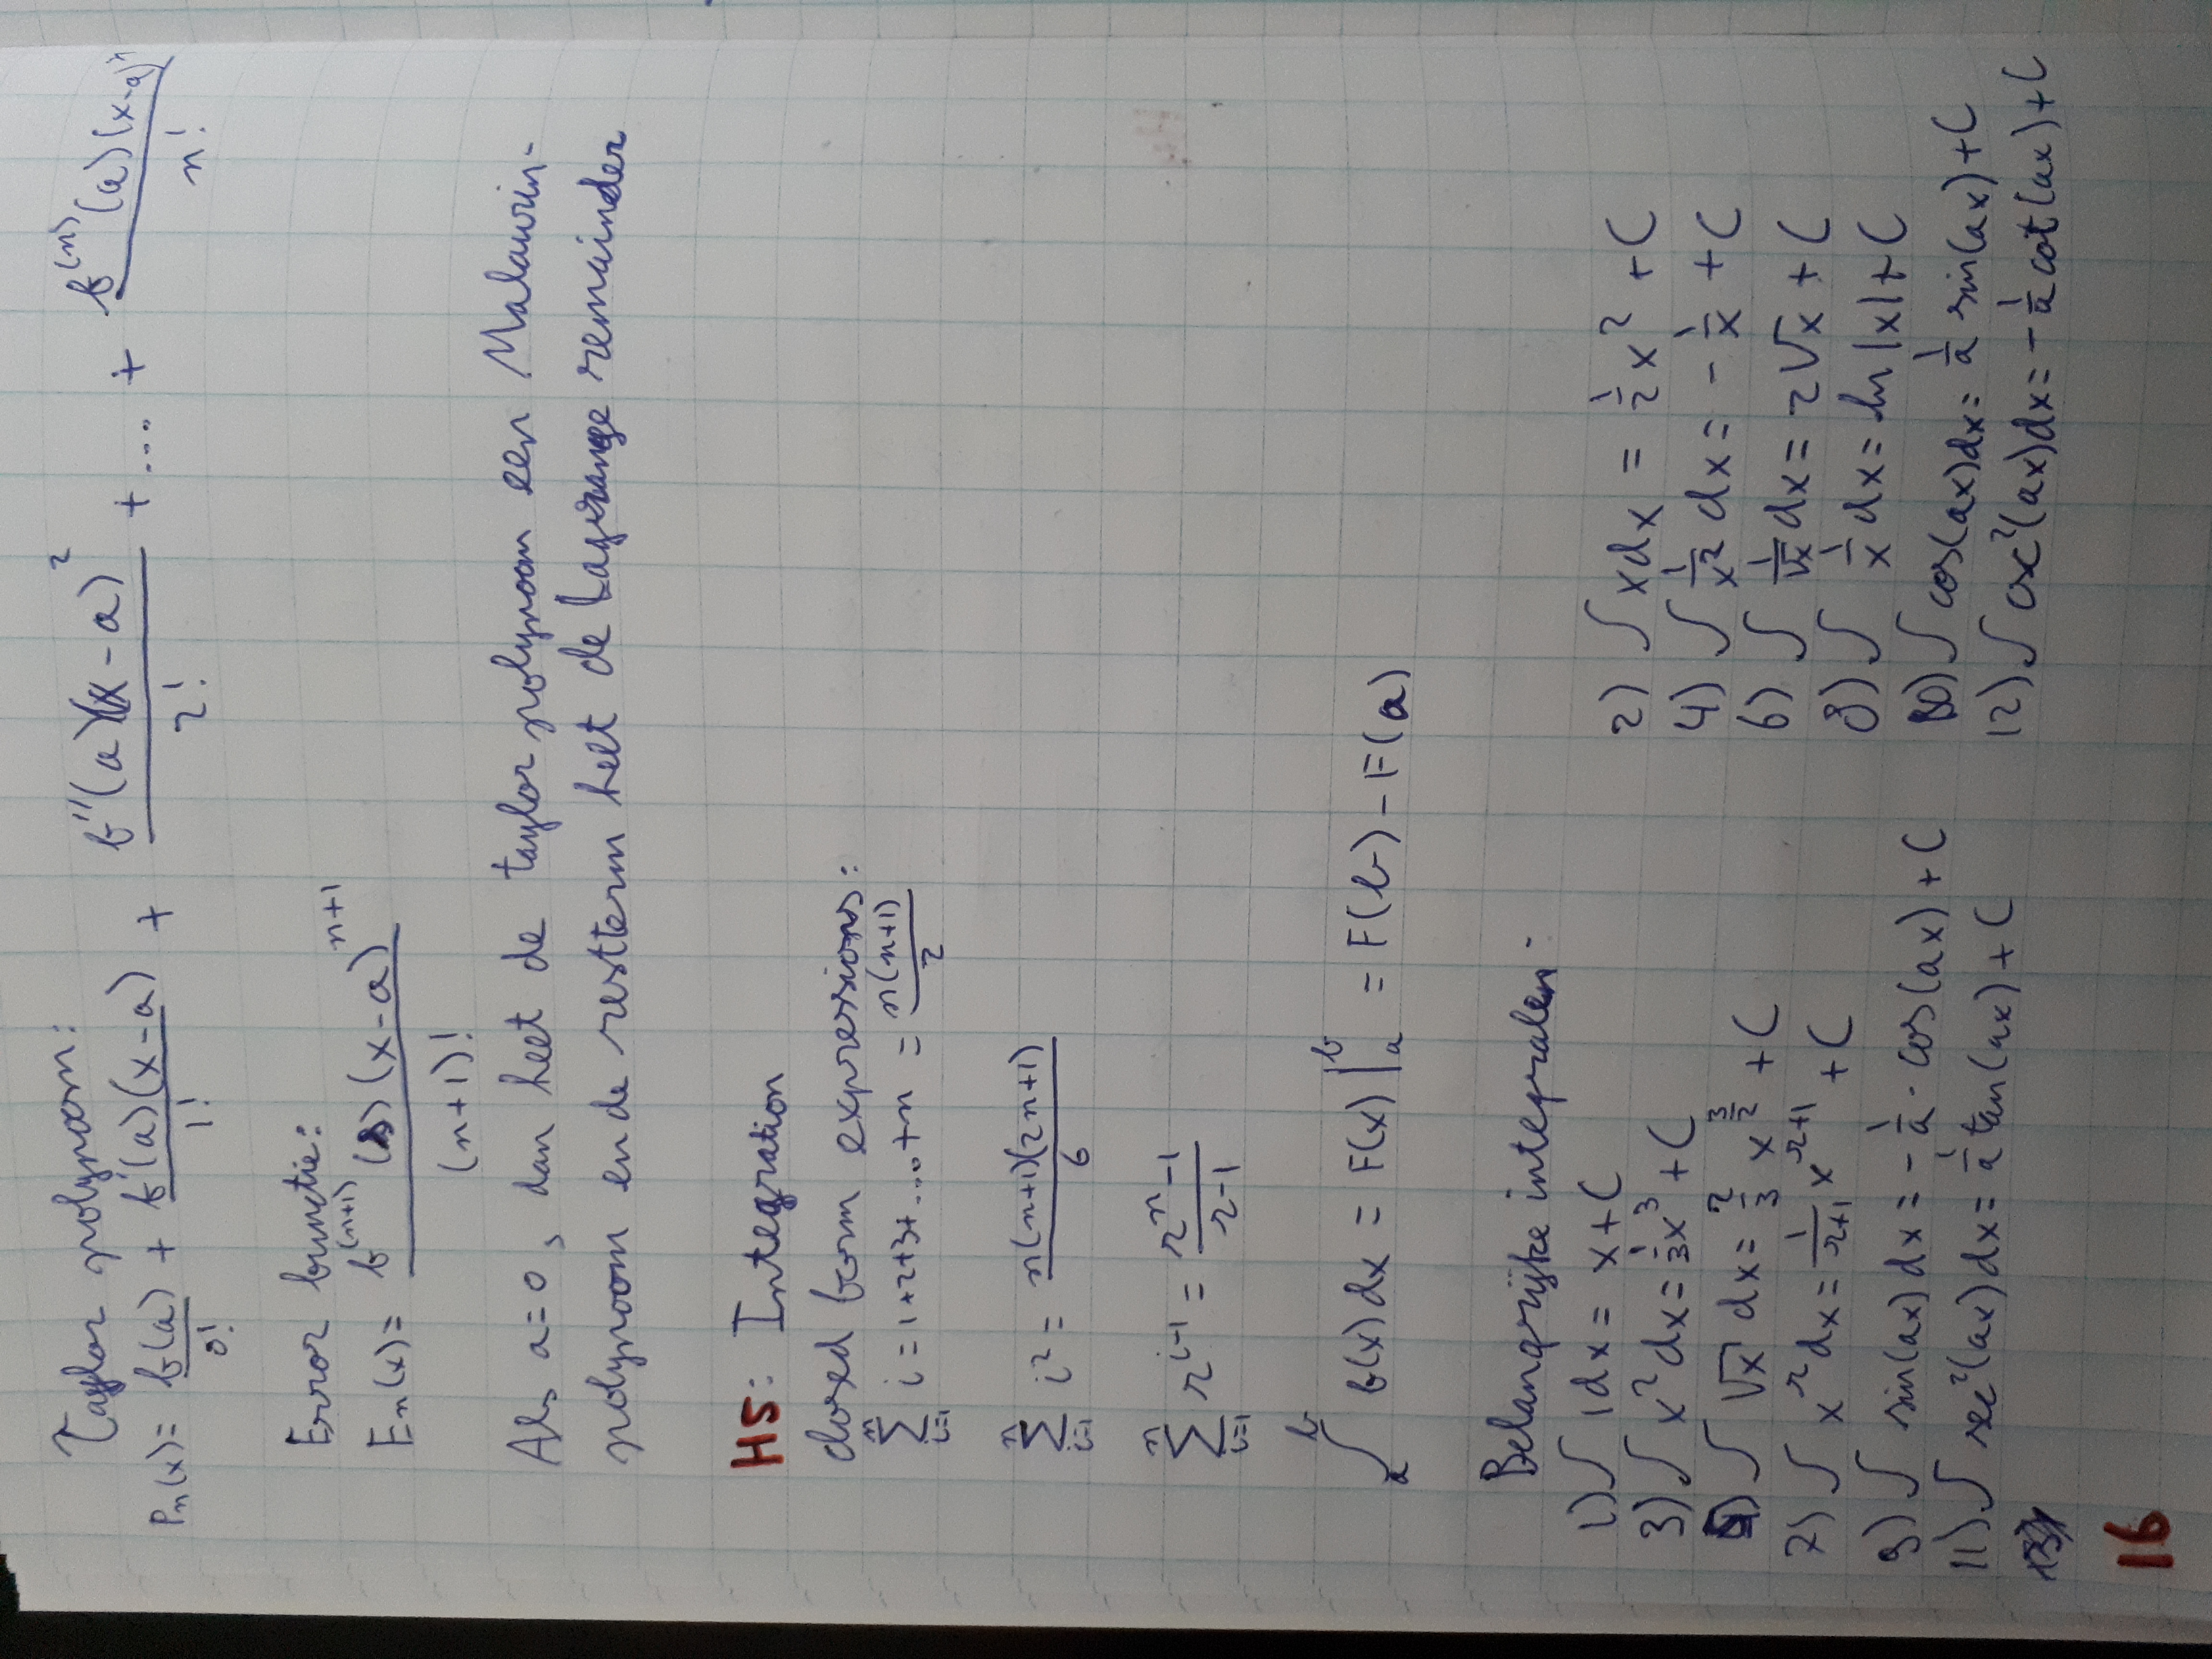 Taylor polynoom:
Pₙ(x) = f(a)/0! + f'(a)(x-a)/1! + f''(a)(x-a)²/2! + ... + f⁽ⁿ⁾(a)(x-a)ⁿ/n!
Error functie:
Eₙ(x) = f⁽ⁿ⁺¹⁾(s)(x-a)ⁿ⁺¹/(n+1)!
Als a=0, dan heet de taylor polynoom een Malaurin-
polynoom en de restterm heet de Lagrange remainder
H5: Integration
closed form expressions:
∑ᵢ₌₁ⁿ i = 1+2+3+...+n = n(n+1)/2
∑ᵢ₌₁ⁿ i² = n(n+1)(2n+1)/6
∑ᵢ₌₁ⁿ rⁱ⁻¹ = (rⁿ-1)/(r-1)
∫ₐᵇ f(x)dx = F(x)|ₐᵇ = F(b) - F(a)
Belangrijke integralen:
1) ∫ 1dx = x+C 2) ∫ xdx = 1/2 x² + C
3) ∫ x²dx = 1/3 x³ + C 4) ∫ 1/x² dx = - 1/x + C
5) ∫ √x dx = 2/3 x^(3/2) + C 6) ∫ 1/√x dx = 2√x + C
7) ∫ xʳdx = 1/(r+1) xʳ⁺¹ + C 8) ∫ 1/x dx = ln|x| + C
9) ∫ sin(ax)dx = - 1/a · cos(ax) + C 10) ∫ cos(ax)dx = 1/a sin(ax) + C
11) ∫ sec²(ax)dx = 1/a tan(ax) + C 12) ∫ csc²(ax)dx = - 1/a cot(ax) + C
16